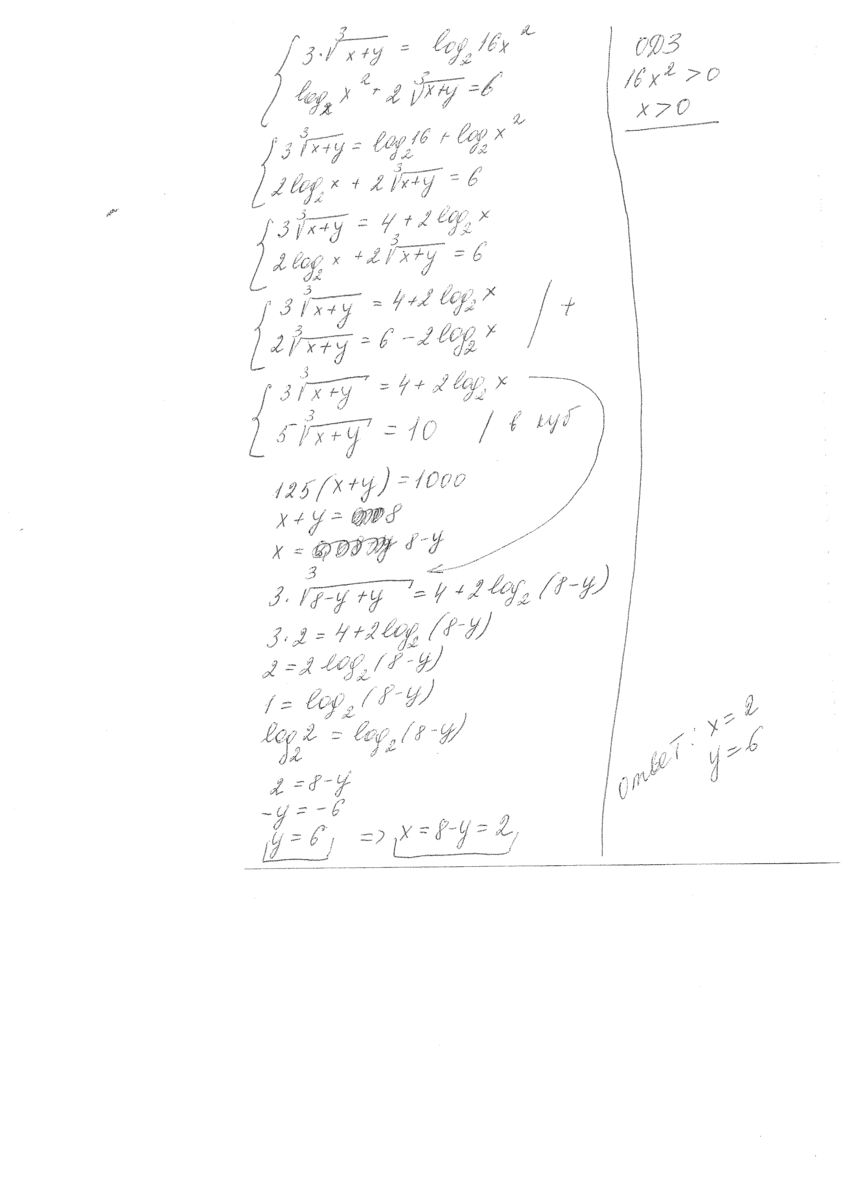 { 3·∛(x+y) = log₂16x²
log₂x² + 2∛(x+y) = 6
{ 3∛(x+y) = log₂16 + log₂x²
2log₂x + 2∛(x+y) = 6
{ 3∛(x+y) = 4 + 2log₂x
2log₂x + 2∛(x+y) = 6
{ 3∛(x+y) = 4 + 2log₂x
2∛(x+y) = 6 - 2log₂x / +
{ 3∛(x+y) = 4 + 2log₂x
5∛(x+y) = 10 / в куб
125(x+y) = 1000
x + y = 8
x = 8-y
3·∛(8-y+y) = 4 + 2log₂(8-y)
3·2 = 4 + 2log₂(8-y)
2 = 2log₂(8-y)
1 = log₂(8-y)
log₂2 = log₂(8-y)
2 = 8-y
-y = -6
y = 6 => x = 8-y = 2
ОДЗ
16x² > 0
x > 0
Ответ: x = 2
y = 6